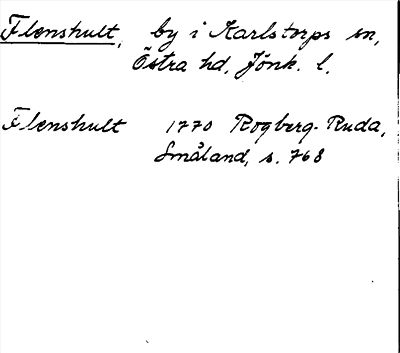 Flenshult, by i Karlstorps sn,
Östra hd, Jönk. l.
Flenshult 1770 Rogberg-Ruda,
Småland, s. 768